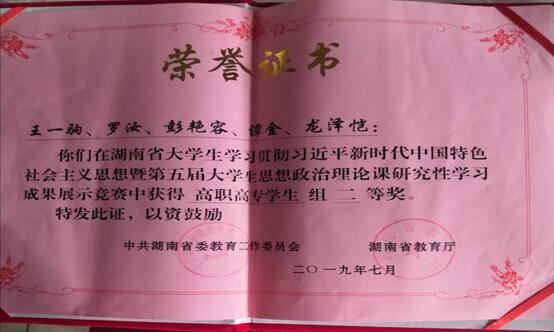 荣誉证书
王一驹、罗汝、彭艳容、谭金、龙泽恺：
你们在湖南省大学生学习贯彻习近平新时代中国特色
社会主义思想暨第五届大学生思想政治理论课研究性学习
成果展示竞赛中获得 高职高专学生 组 二 等奖。
特发此证，以资鼓励
中共湖南省委教育工作委员会 湖南省教育厅
二〇一九年七月